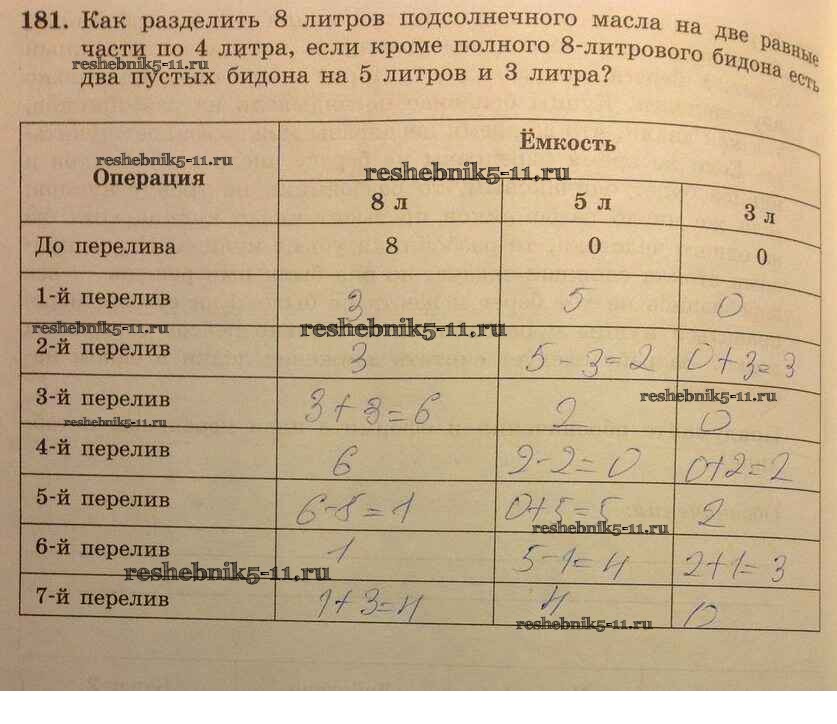 181. Как разделить 8 литров подсолнечного масла на две равные
части по 4 литра, если кроме полного 8-литрового бидона есть
reshebnik5-11.ru
два пустых бидона на 5 литров и 3 литра?
Ёмкость
reshebnik5-11.ru
reshebnik5-11.ru
Операция
8 л 5 л 3 л
До перелива 8 0 0
1-й перелив 3 5 0
reshebnik5-11.ru
reshebnik5-11.ru
2-й перелив 3 5-3=2 0+3=3
reshebnik5-11.ru
3-й перелив 3+3=6 2 0
reshebnik5-11.ru
4-й перелив 6 2-2=0 0+2=2
5-й перелив 6-5=1 0+5=5 2
reshebnik5-11.ru
6-й перелив 1 5-1=4 2+1=3
reshebnik5-11.ru
7-й перелив 1+3=4 4 0
reshebnik5-11.ru